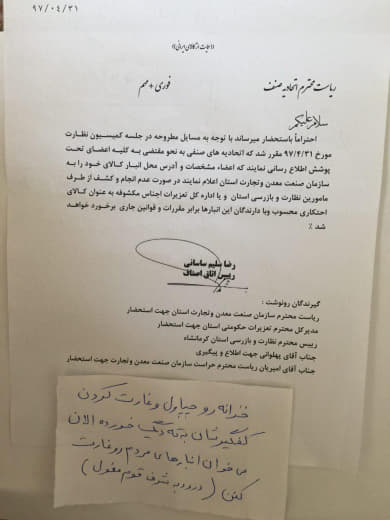 ۹۷/۰۴/۳۱
((حمایت از کالای ایرانی))
ریاست محترم اتحادیه صنف
فوری + مهم
سلام علیکم
احتراماً باستحضار میرساند با توجه به مسایل مطروحه در جلسه کمیسیون نظارت
مورخ ۹۷/۴/۳۱ مقرر شد که اتحادیه های صنفی به نحو مقتضی به کلیه اعضای تحت
پوشش اطلاع رسانی نمایند که اعضاء مشخصات و آدرس محل انبار کالای خود را به
سازمان صنعت معدن وتجارت استان اعلام نمایند در صورت عدم انجام و کشف از طرف
مامورین نظارت و بازرسی استان و یا اداره کل تعزیرات اجناس مکشوفه به عنوان کالای
احتکاری محسوب وبا دارندگان این انبارها برابر مقررات و قوانین جاری برخورد خواهد
شد ٪
رضا سلیم ساسانی
رییس اتاق اصناف
گیرندگان رونوشت :
ریاست محترم سازمان صنعت معدن و تجارت استان جهت استحضار
مدیرکل محترم تعزیرات حکومتی استان جهت استحضار
رییس محترم نظارت و بازرسی استان کرمانشاه
جناب آقای پهلوانی جهت اطلاع و پیگیری
جناب آقای امیریان ریاست محترم حراست سازمان صنعت معدن و تجارت جهت استحضار
خزانه رو چپاول و غارت کردن
کفگیرشان به ته دیگ خورده الان
می خوان انبارهای مردم رو غارت
کنن (درود به شرف قوم مغول)